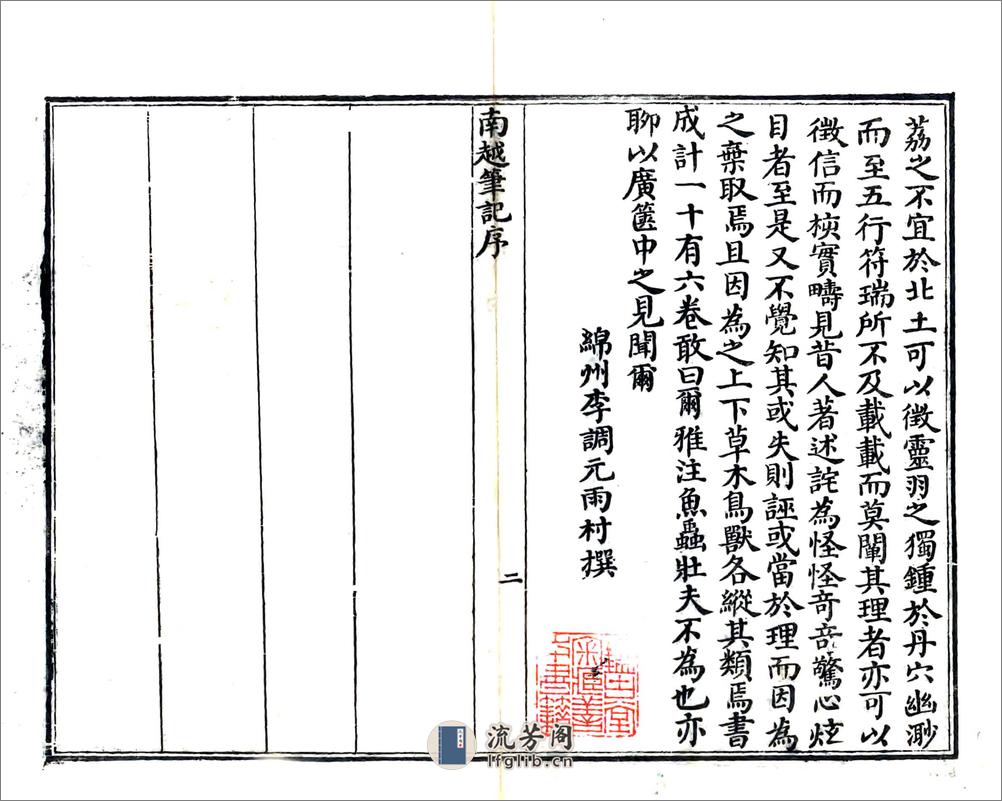 荔之不宜於北土可以徵靈羽之獨鍾於丹穴幽渺
而至五行符瑞所不及載載而莫闡其理者亦可以
徵信而核實疇見昔人著述詫為怪怪奇奇驚心炫
目者至是又不覺知其或失則誣或當於理而因為
之棄取焉且因為之上下草木鳥獸各縱其類焉書
成計一十有六卷敢曰爾雅注魚蟲壯夫不為也亦
聊以廣篋中之見聞爾
綿州李調元雨村撰
南越筆記序
二
流芳阁
lfglib.cn